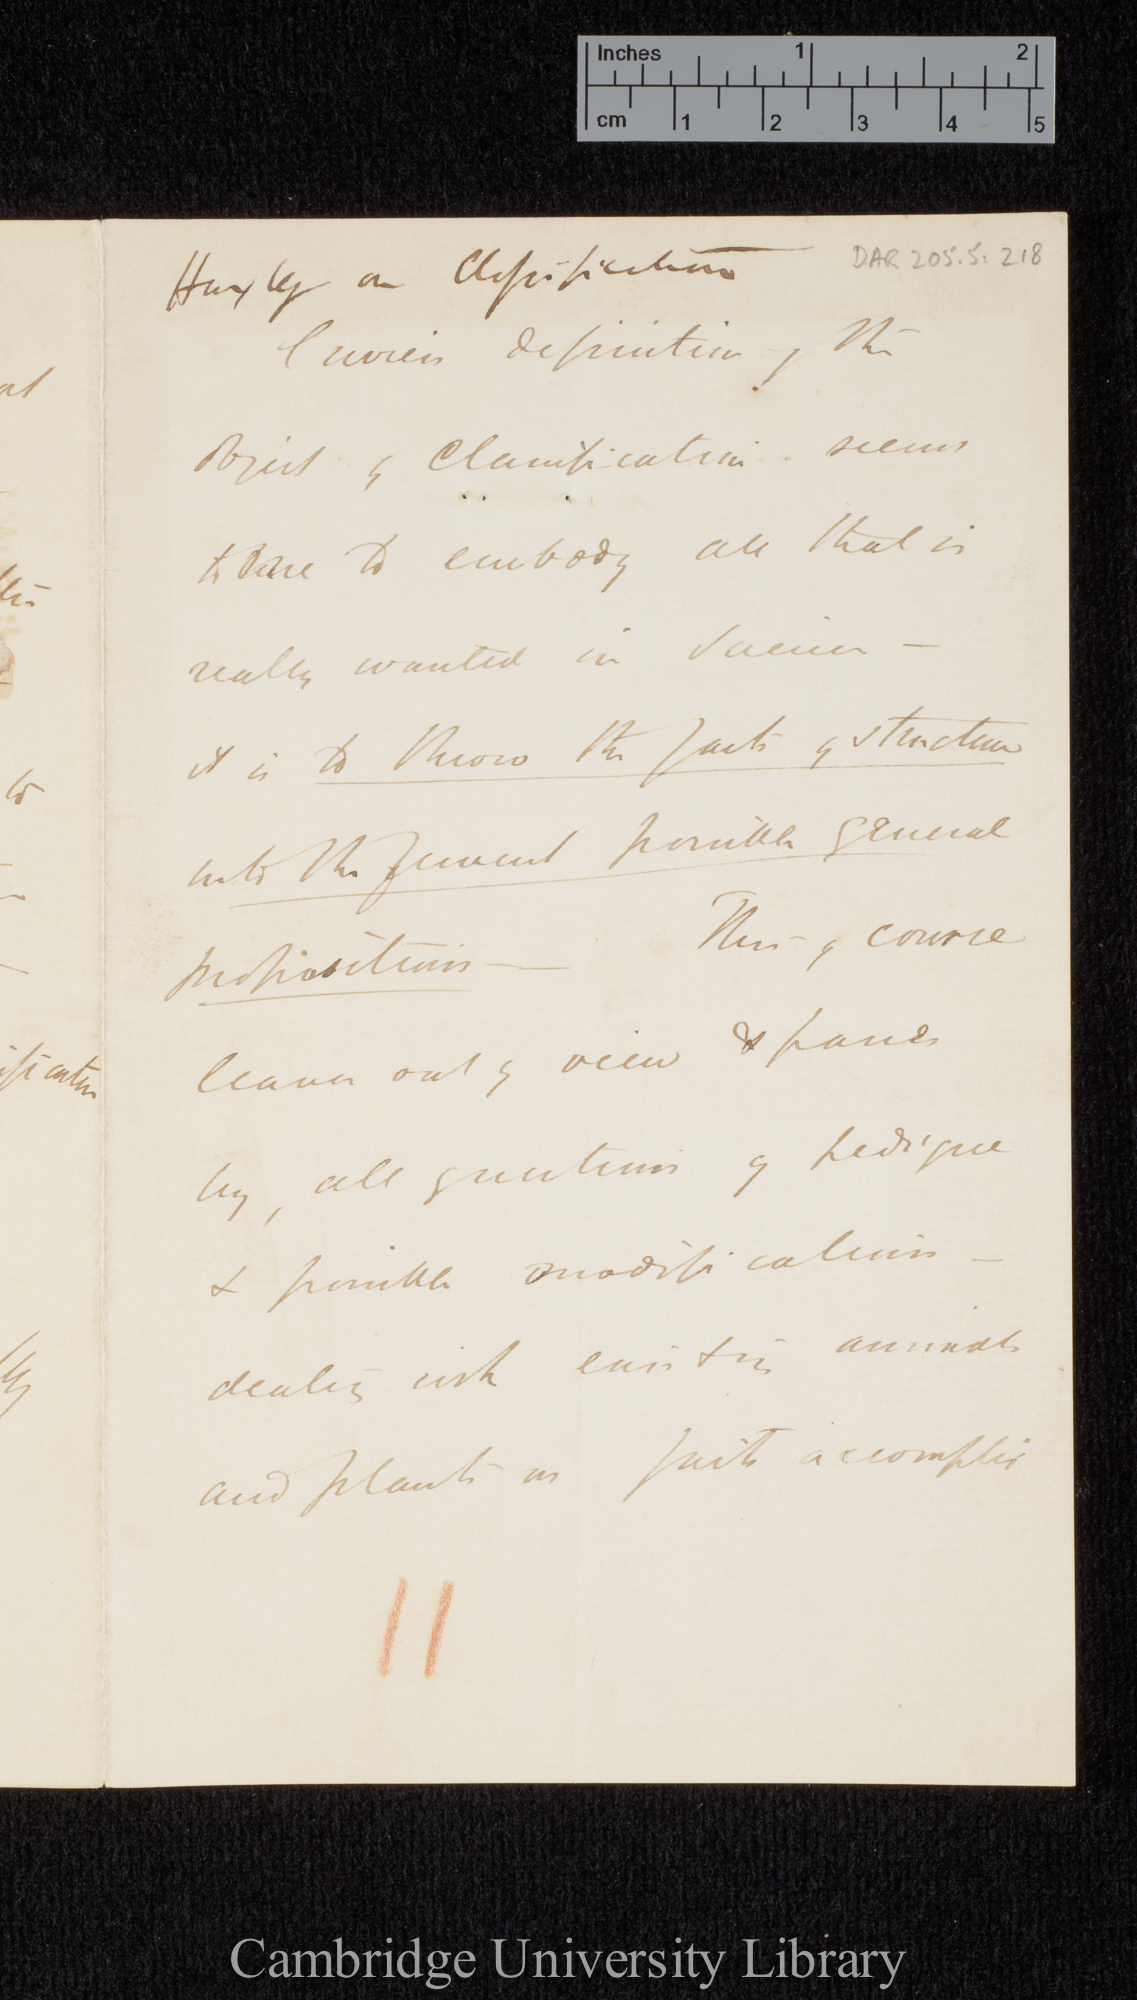 Inches 1 2
cm 1 2 3 4 5
DAR 205.5: 218
Huxley on Classification
Cuviers definition of the
object of Classification seems
to me to embody all that is
really wanted in Science —
it is to throw the facts of structure
into the fewest possible general
propositions — This of course
leaves out of view & passes
by, all questions of pedigree
& possible modifications —
dealing with existing animals
and plants as faits accomplis
ification
Cambridge University Library